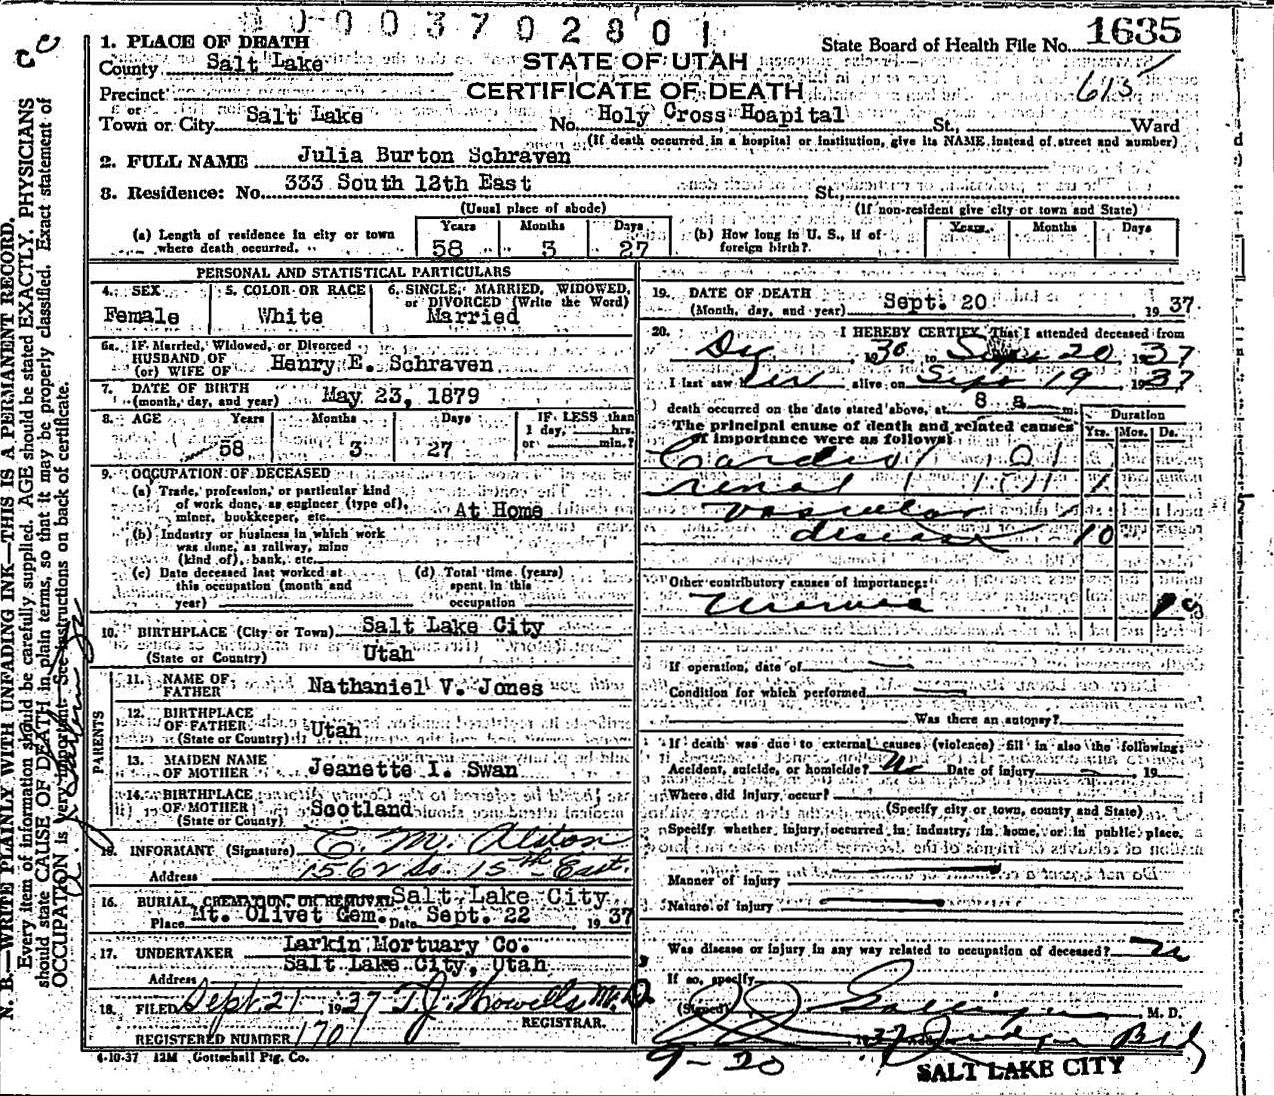 0003702801
1635
State Board of Health File No.
615
STATE OF UTAH
CERTIFICATE OF DEATH
1. PLACE OF DEATH
County Salt Lake
Precinct
or
Town or City Salt Lake No. Holy Cross Hoapital St., Ward
(If death occurred in a hospital or institution, give its NAME instead of street and number)
2. FULL NAME Julia Burton Schraven
3. Residence: No. 333 South 12th East St.
(Usual place of abode) (If non-resident give city or town and State)
(a) Length of residence in city or town where death occurred. Years 58 Months 3 Days 27
(b) How long in U. S., if of foreign birth? Years Months Days
PERSONAL AND STATISTICAL PARTICULARS
4. SEX Female
5. COLOR OR RACE White
6. SINGLE, MARRIED, WIDOWED, or DIVORCED (Write the Word) Married
6a. IF Married, Widowed, or Divorced
HUSBAND OF
(or) WIFE OF Henry E. Schraven
7. DATE OF BIRTH
(month, day, and year) May 23, 1879
8. AGE Years 58 Months 3 Days 27
IF LESS than
1 day, hrs.
or min.?
9. OCCUPATION OF DECEASED
(a) Trade, profession, or particular kind
of work done, as engineer (type of),
miner, bookkeeper, etc. At Home
(b) Industry or business in which work
was done, as railway, mine
(kind of), bank, etc.
(c) Date deceased last worked at
this occupation (month and
year)
(d) Total time (years)
spent in this
occupation
10. BIRTHPLACE (City or Town) Salt Lake City
(State or Country) Utah
PARENTS
11. NAME OF
FATHER Nathaniel V. Jones
12. BIRTHPLACE
OF FATHER
(State or Country) Utah
13. MAIDEN NAME
OF MOTHER Jeanette I. Swan
14. BIRTHPLACE
OF MOTHER
(State or County) Scotland
15. INFORMANT (Signature) C. M. Alston
Address 1562 So. 15th East.
16. BURIAL, CREMATION, OR REMOVAL Salt Lake City
Place Mt. Olivet Cem. Date Sept. 22 1937
17. UNDERTAKER Larkin Mortuary Co.
Address Salt Lake City, Utah
18. FILED Sept. 21 1937 T. J. Howells M.D.
REGISTRAR.
REGISTERED NUMBER 1701
4-10-37 12M Gottschall Ptg. Co.
19. DATE OF DEATH
(Month, day, and year) Sept. 20 1937
20. I HEREBY CERTIFY, That I attended deceased from
1936 to Sept 20 1937
I last saw her alive on Sept 19 1937
death occurred on the date stated above, at 8 a m.
The principal cause of death and related causes
of importance were as follows:
Duration
Yrs. Mos. Ds.
Cardio
renal
vascular
disease 10
Other contributory causes of importance:
Uremia
If operation, date of
Condition for which performed
Was there an autopsy?
If death was due to external causes (violence) fill in also the following:
Accident, suicide, or homicide? No Date of injury 19
Where did injury occur?
(Specify city or town, county and State)
Specify whether injury occurred in industry, in home, or in public place.
Manner of injury
Nature of injury
Was disease or injury in any way related to occupation of deceased? No
If so, specify
(Signed) M. D.
1937 Judge Bldg
9-20 SALT LAKE CITY
N. B.—WRITE PLAINLY WITH UNFADING INK—THIS IS A PERMANENT RECORD.
Every item of information should be carefully supplied. AGE should be stated EXACTLY. PHYSICIANS
should state CAUSE OF DEATH in plain terms, so that it may be properly classified. Exact statement of
OCCUPATION is very important. See instructions on back of certificate.